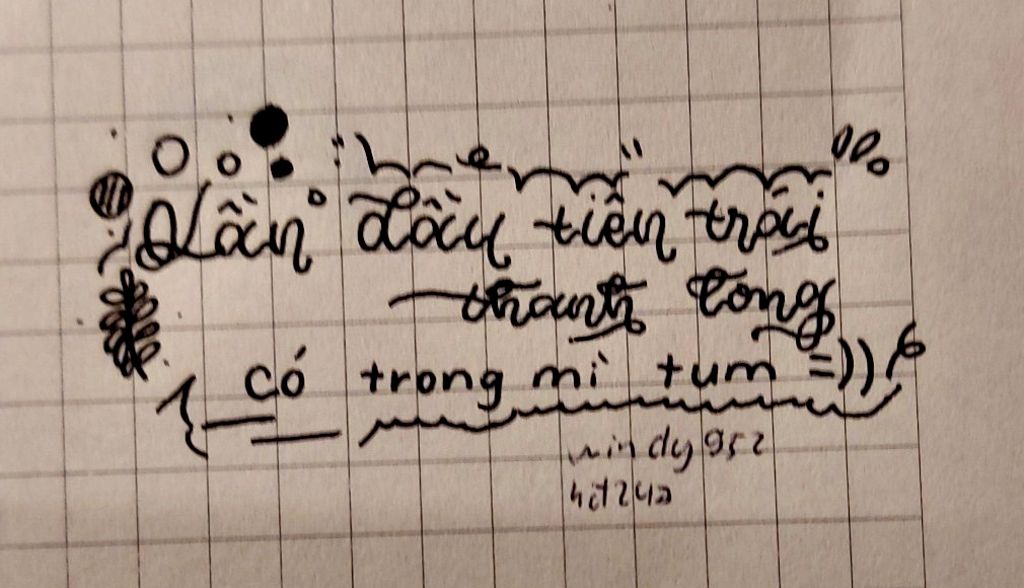 Lần đầu tiên trái
thanh long
có trong mì tum =))
windy952
hit24a